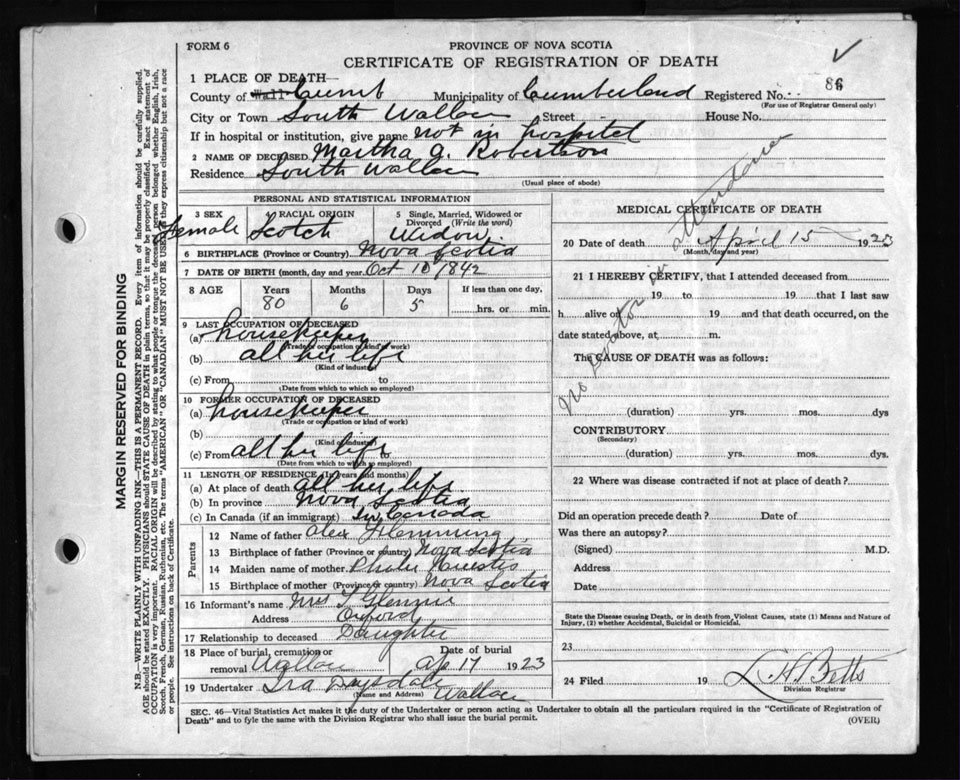 FORM 6
PROVINCE OF NOVA SCOTIA
CERTIFICATE OF REGISTRATION OF DEATH
1 PLACE OF DEATH—
County of Cumb Municipality of Cumberland Registered No. 86
(For use of Registrar General only)
City or Town South Wallace Street House No.
If in hospital or institution, give name not in hospital
2 NAME OF DECEASED Martha A. Robertson
Residence South Wallace
(Usual place of abode)
PERSONAL AND STATISTICAL INFORMATION
3 SEX Female
RACIAL ORIGIN Scotch
5 Single, Married, Widowed or Divorced (Write the word) Widow
6 BIRTHPLACE (Province or Country) Nova Scotia
7 DATE OF BIRTH (month, day and year) Oct 10 1842
8 AGE Years Months Days If less than one day,
80 6 5 hrs. or min.
9 LAST OCCUPATION OF DECEASED
(a) housekeeper
(Trade or occupation or kind of work)
(b) all her life
(Kind of industry)
(c) From to
(Date from which to which so employed)
10 FORMER OCCUPATION OF DECEASED
(a) housekeeper
(Trade or occupation or kind of work)
(b)
(Kind of industry)
(c) From all her life to
(Date from which to which so employed)
11 LENGTH OF RESIDENCE (In years and months)
(a) At place of death all her life
(b) In province Nova Scotia
(c) In Canada (if an immigrant) In Canada
Parents
12 Name of father Alex Flemming
13 Birthplace of father (Province or country) Nova Scotia
14 Maiden name of mother
15 Birthplace of mother (Province or country) Nova Scotia
16 Informant's name Mrs Glennie
Address Oxford
17 Relationship to deceased Daughter
18 Place of burial, cremation or removal Wallace Date of burial Ap 17 1923
19 Undertaker Ira Drysdale Wallace
(Name and Address)
MEDICAL CERTIFICATE OF DEATH
20 Date of death April 15 1923
(Month, day and year)
21 I HEREBY CERTIFY, that I attended deceased from
19 to 19 that I last saw
h alive on 19 and that death occurred, on the
date stated above, at m.
The CAUSE OF DEATH was as follows:
No Doctor in attendance
(duration) yrs. mos. dys
CONTRIBUTORY
(Secondary)
(duration) yrs. mos. dys.
22 Where was disease contracted if not at place of death?
Did an operation precede death? Date of
Was there an autopsy?
(Signed) M.D.
Address
Date
State the Disease causing Death, or in death from Violent Causes, state (1) Means and Nature of Injury, (2) whether Accidental, Suicidal or Homicidal.
23
24 Filed 19 Betts
Division Registrar
SEC. 46—Vital Statistics Act makes it the duty of the Undertaker or person acting as Undertaker to obtain all the particulars required in the "Certificate of Registration of
Death" and to fyle the same with the Division Registrar who shall issue the burial permit. (OVER)
MARGIN RESERVED FOR BINDING
N.B.—WRITE PLAINLY WITH UNFADING INK—THIS IS A PERMANENT RECORD. Every item of information should be carefully supplied.
AGE should be stated EXACTLY. PHYSICIANS should STATE CAUSE OF DEATH in plain terms, so that it may be properly classified. Exact statement of
OCCUPATION is very important. RACIAL ORIGIN will be described by stating to what people or tongue the deceased person belonged whether English, Irish,
Scotch, French, German, Russian, Ruthenian, etc. The terms "AMERICAN" OR "CANADIAN" MUST NOT BE USED as they express citizenship but not a race
or people. See instructions on back of Certificate.